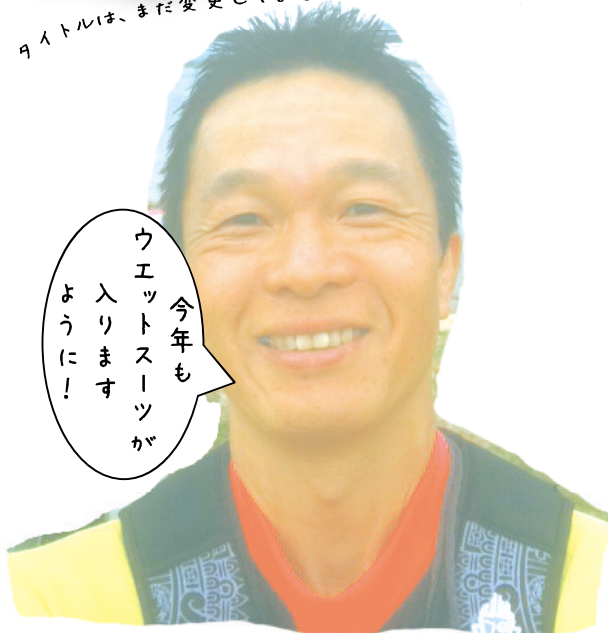 タイトルは、まだ変更
今年も
ウエットスーツが
入ります
ように!